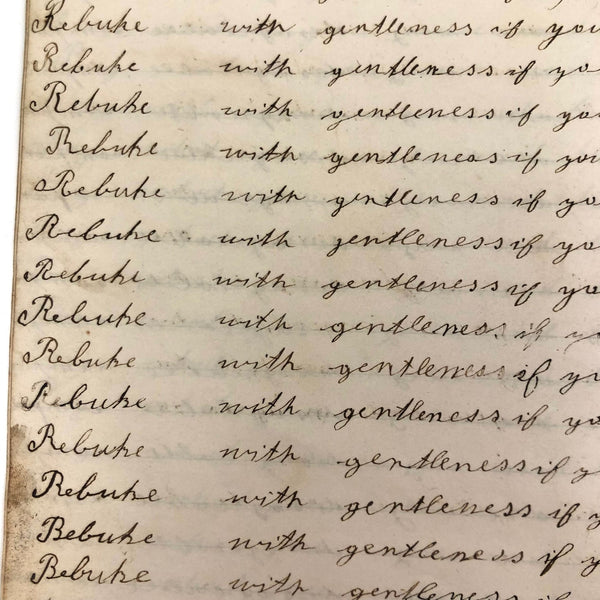 Rebuke with gentleness if you
Rebuke with gentleness if yo
Rebuke with gentleness if yo
Rebuke with gentleness if you
Rebuke with gentleness if yo
Rebuke with gentleness if yo
Rebuke with gentleness if yo
Rebuke with gentleness if yo
Rebuke with gentleness if yo
Rebuke with gentleness if yo
Rebuke with gentleness if y
Rebuke with gentleness if y
Bebuke with gentleness if y
Bebuke with gentleness if